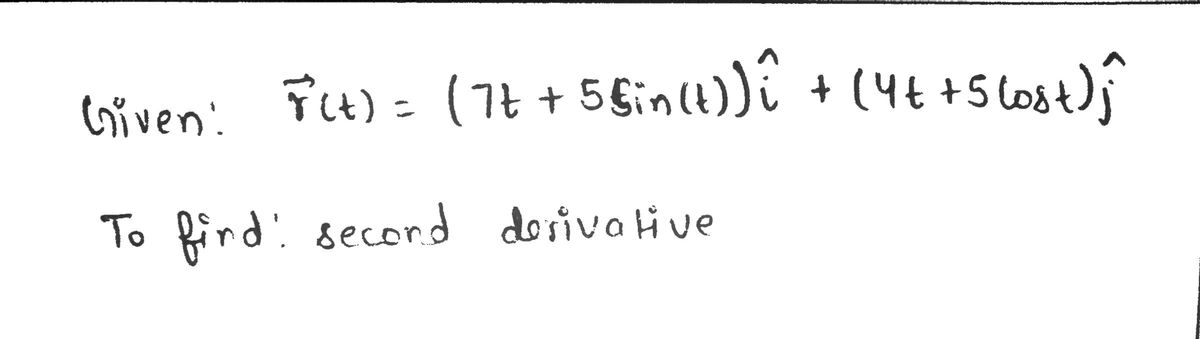 Given: r⃗(t) = (7t + 5sin(t))î + (4t + 5cost)ĵ
To find: second derivative